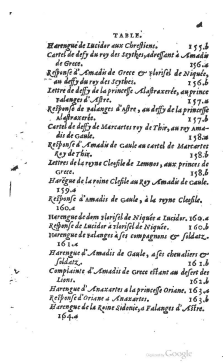 TABLE.
Harengue de Lucidor aux Chrestiens. 155.b
Cartel de deffy du roy des Scythes, adressant à Amadis
de Grece. 156.a
Response d'Amadis de Grece & Florisel de Niquée,
au deffy du roy des Scythes. 156.b
Lettre de deffy de la princesse Alastraxerée, au prince
Falanges d'Astre. 157.a
Response de Falanges d'Astre, au deffy de la princesse
Alastraxerée. 157.b
Cartel de deffy de Marcartes roy de Thir, au roy Ama-
dis de Gaule. 158.a
Response d'Amadis de Gaule au cartel de Marcartes
Roy de Thir. 158.b
Lettres de la royne Cleofile de Lemnos, aux princes de
Grece. 158.b
Harēgue de la roine Cleofile au Roy Amadis de Gaule.
159.a
Response d'Amadis de Gaule, à la royne Cleofile.
160.a
Harengue de dom Florisel de Niquée a Lucidor. 160.a
Response de Lucidor à Florisel de Niquée. 160.b
Harengue de Falanges à ses compagnons & soldatz.
161.a
Harengue d'Amadis de Gaule, a ses chevaliers &
soldatz. 161.b
Complainte d'Amadis de Grece estant au desert des
Lions. 162.b
Harengue d'Anaxartes à la princesse Oriane. 163.a
Response d'Oriane a Anaxartes. 163.b
Harengue de la Roine Sidonie, a Falanges d'Astre.
164.a
Google